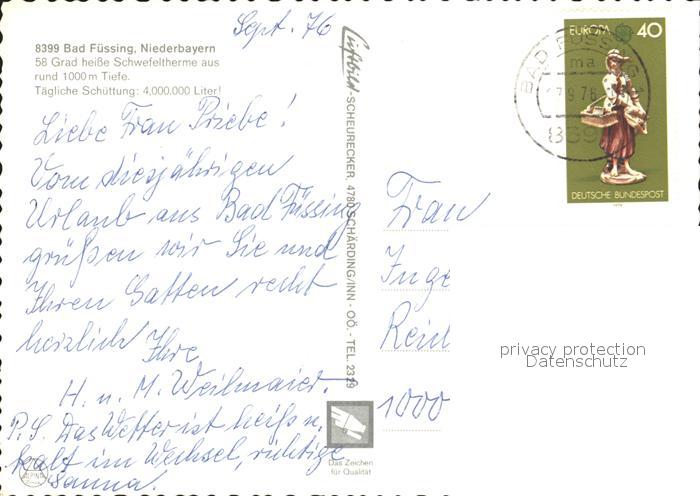 Sept. 76
8399 Bad Füssing, Niederbayern
58 Grad heiße Schwefeltherme aus
rund 1000 m Tiefe.
Tägliche Schüttung: 4,000.000 Liter!
Liebe Frau Priebe!
Vom diesjährigen
Urlaub aus Bad Füssing
grüßen wir Sie und
Ihren Gatten recht
herzlich Ihre
H. u. M. Weilmaier.
P.S. Das Wetter ist heiß u.
kalt im Wechsel, richtige
Sauna.
Luftbild-SCHEURECKER, 4780 SCHÄRDING/INN - OÖ. - TEL. 2329
Das Zeichen
für Qualität
EUROPA 40
DEUTSCHE BUNDESPOST
1976
BAD FÜSSING
ma
7.9.76
8399
Frau
Inge
1000
privacy protection
Datenschutz